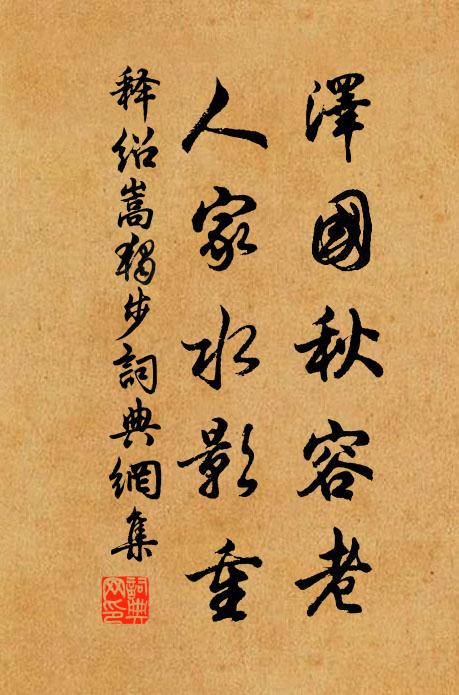 澤國秋容老
人家水影重
释紹嵩獨步詞典網集
詞典網印